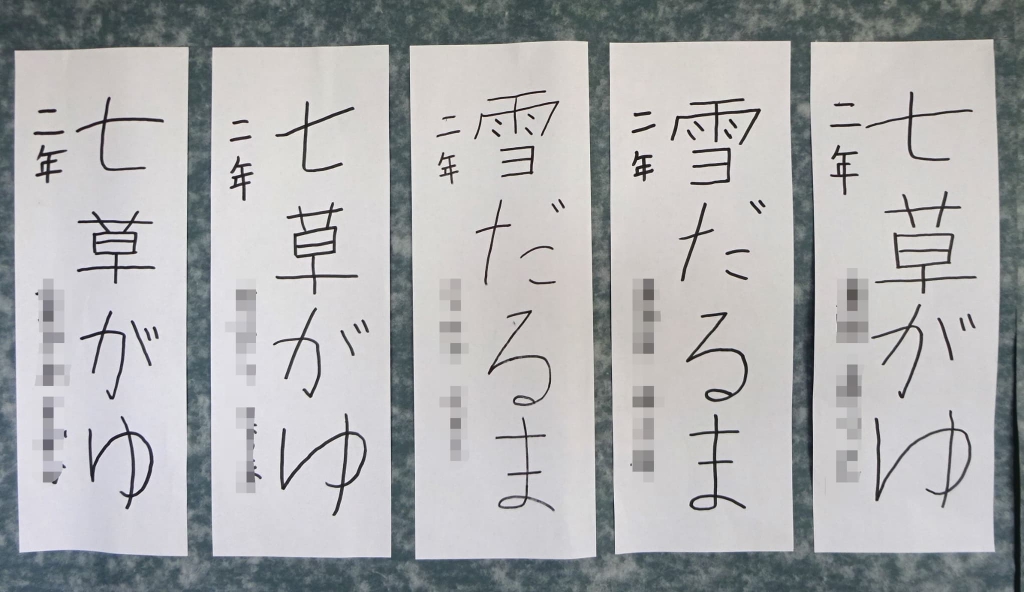 七草がゆ
二年
雪だるま
二年
雪だるま
二年
七草がゆ
二年
七草がゆ
二年